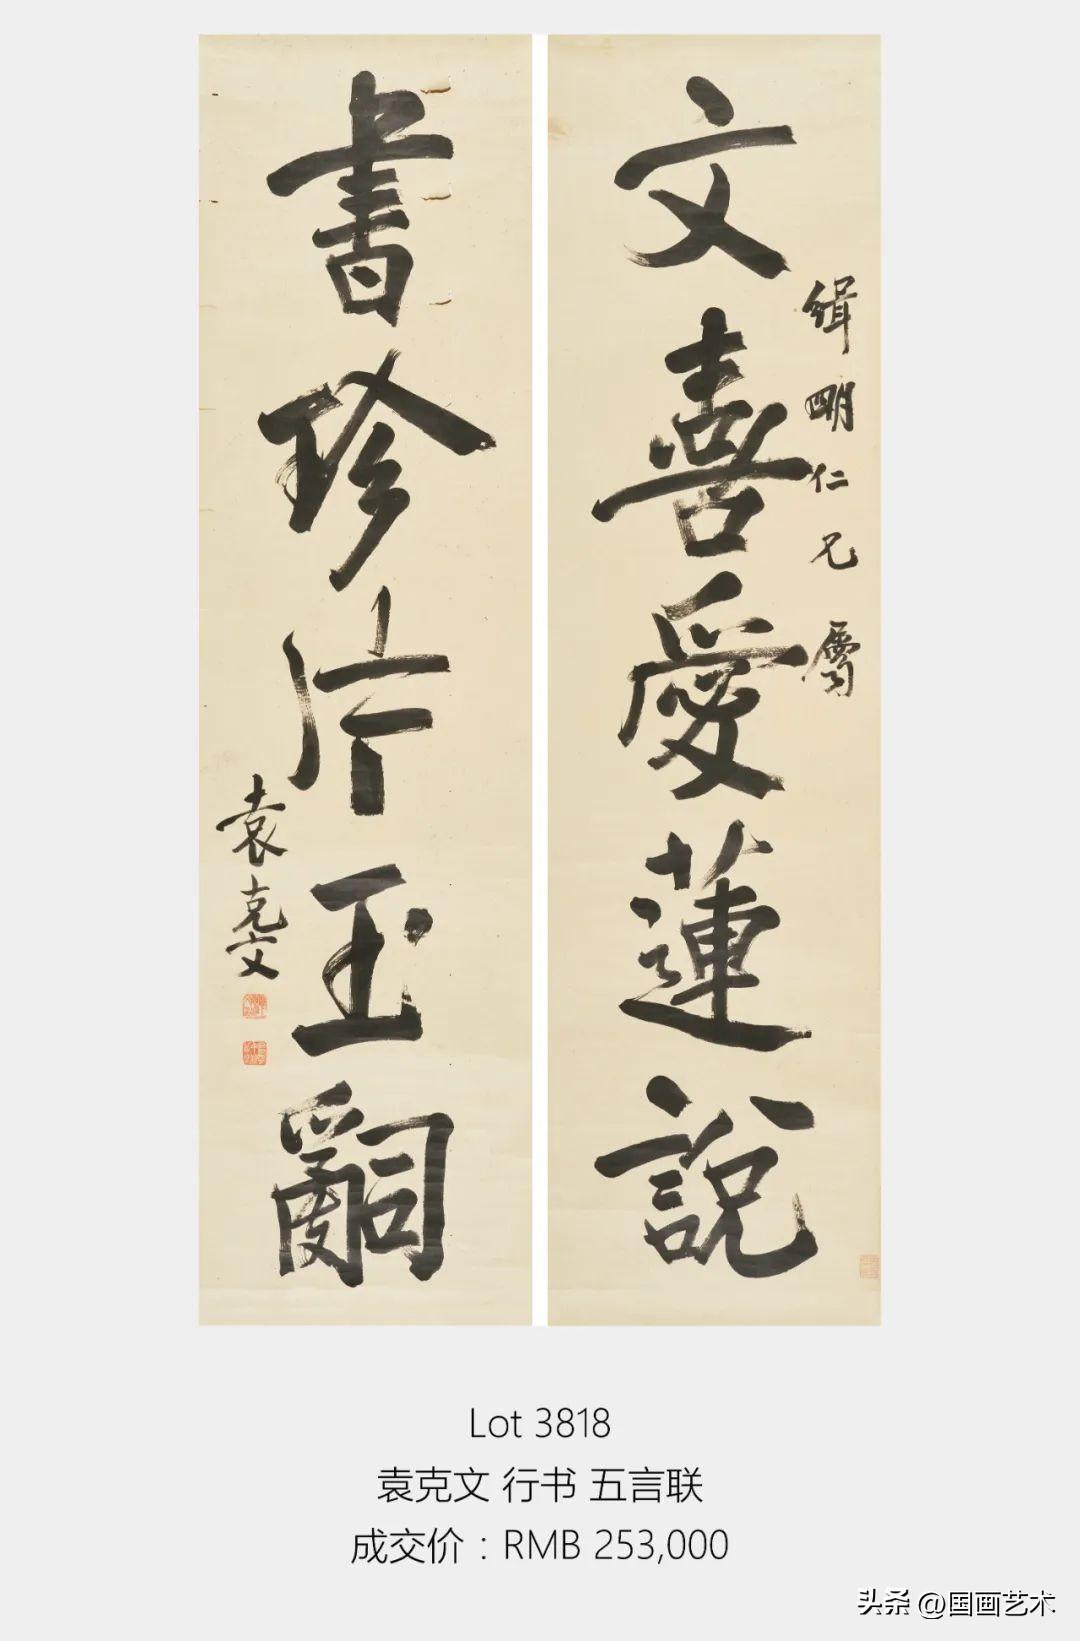 文喜愛蓮說
緝明仁兄屬
書珍片玉嗣
袁克文
Lot 3818
袁克文 行书 五言联
成交价：RMB 253,000
头条 @国画艺术